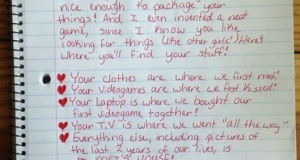 nice enough to package your
things! And I even invented a neat
game, since I know you like
looking for things like other girls! Here's
where you'll find your stuff!
Your clothes are where we first met!
Your videogames are where we first kissed!
Your laptop is where we bought our
first videogame together!
Your T.V is where we went "all the way."
Everything else, including pictures of
the last 2 years of our lives, is
HOUSE!